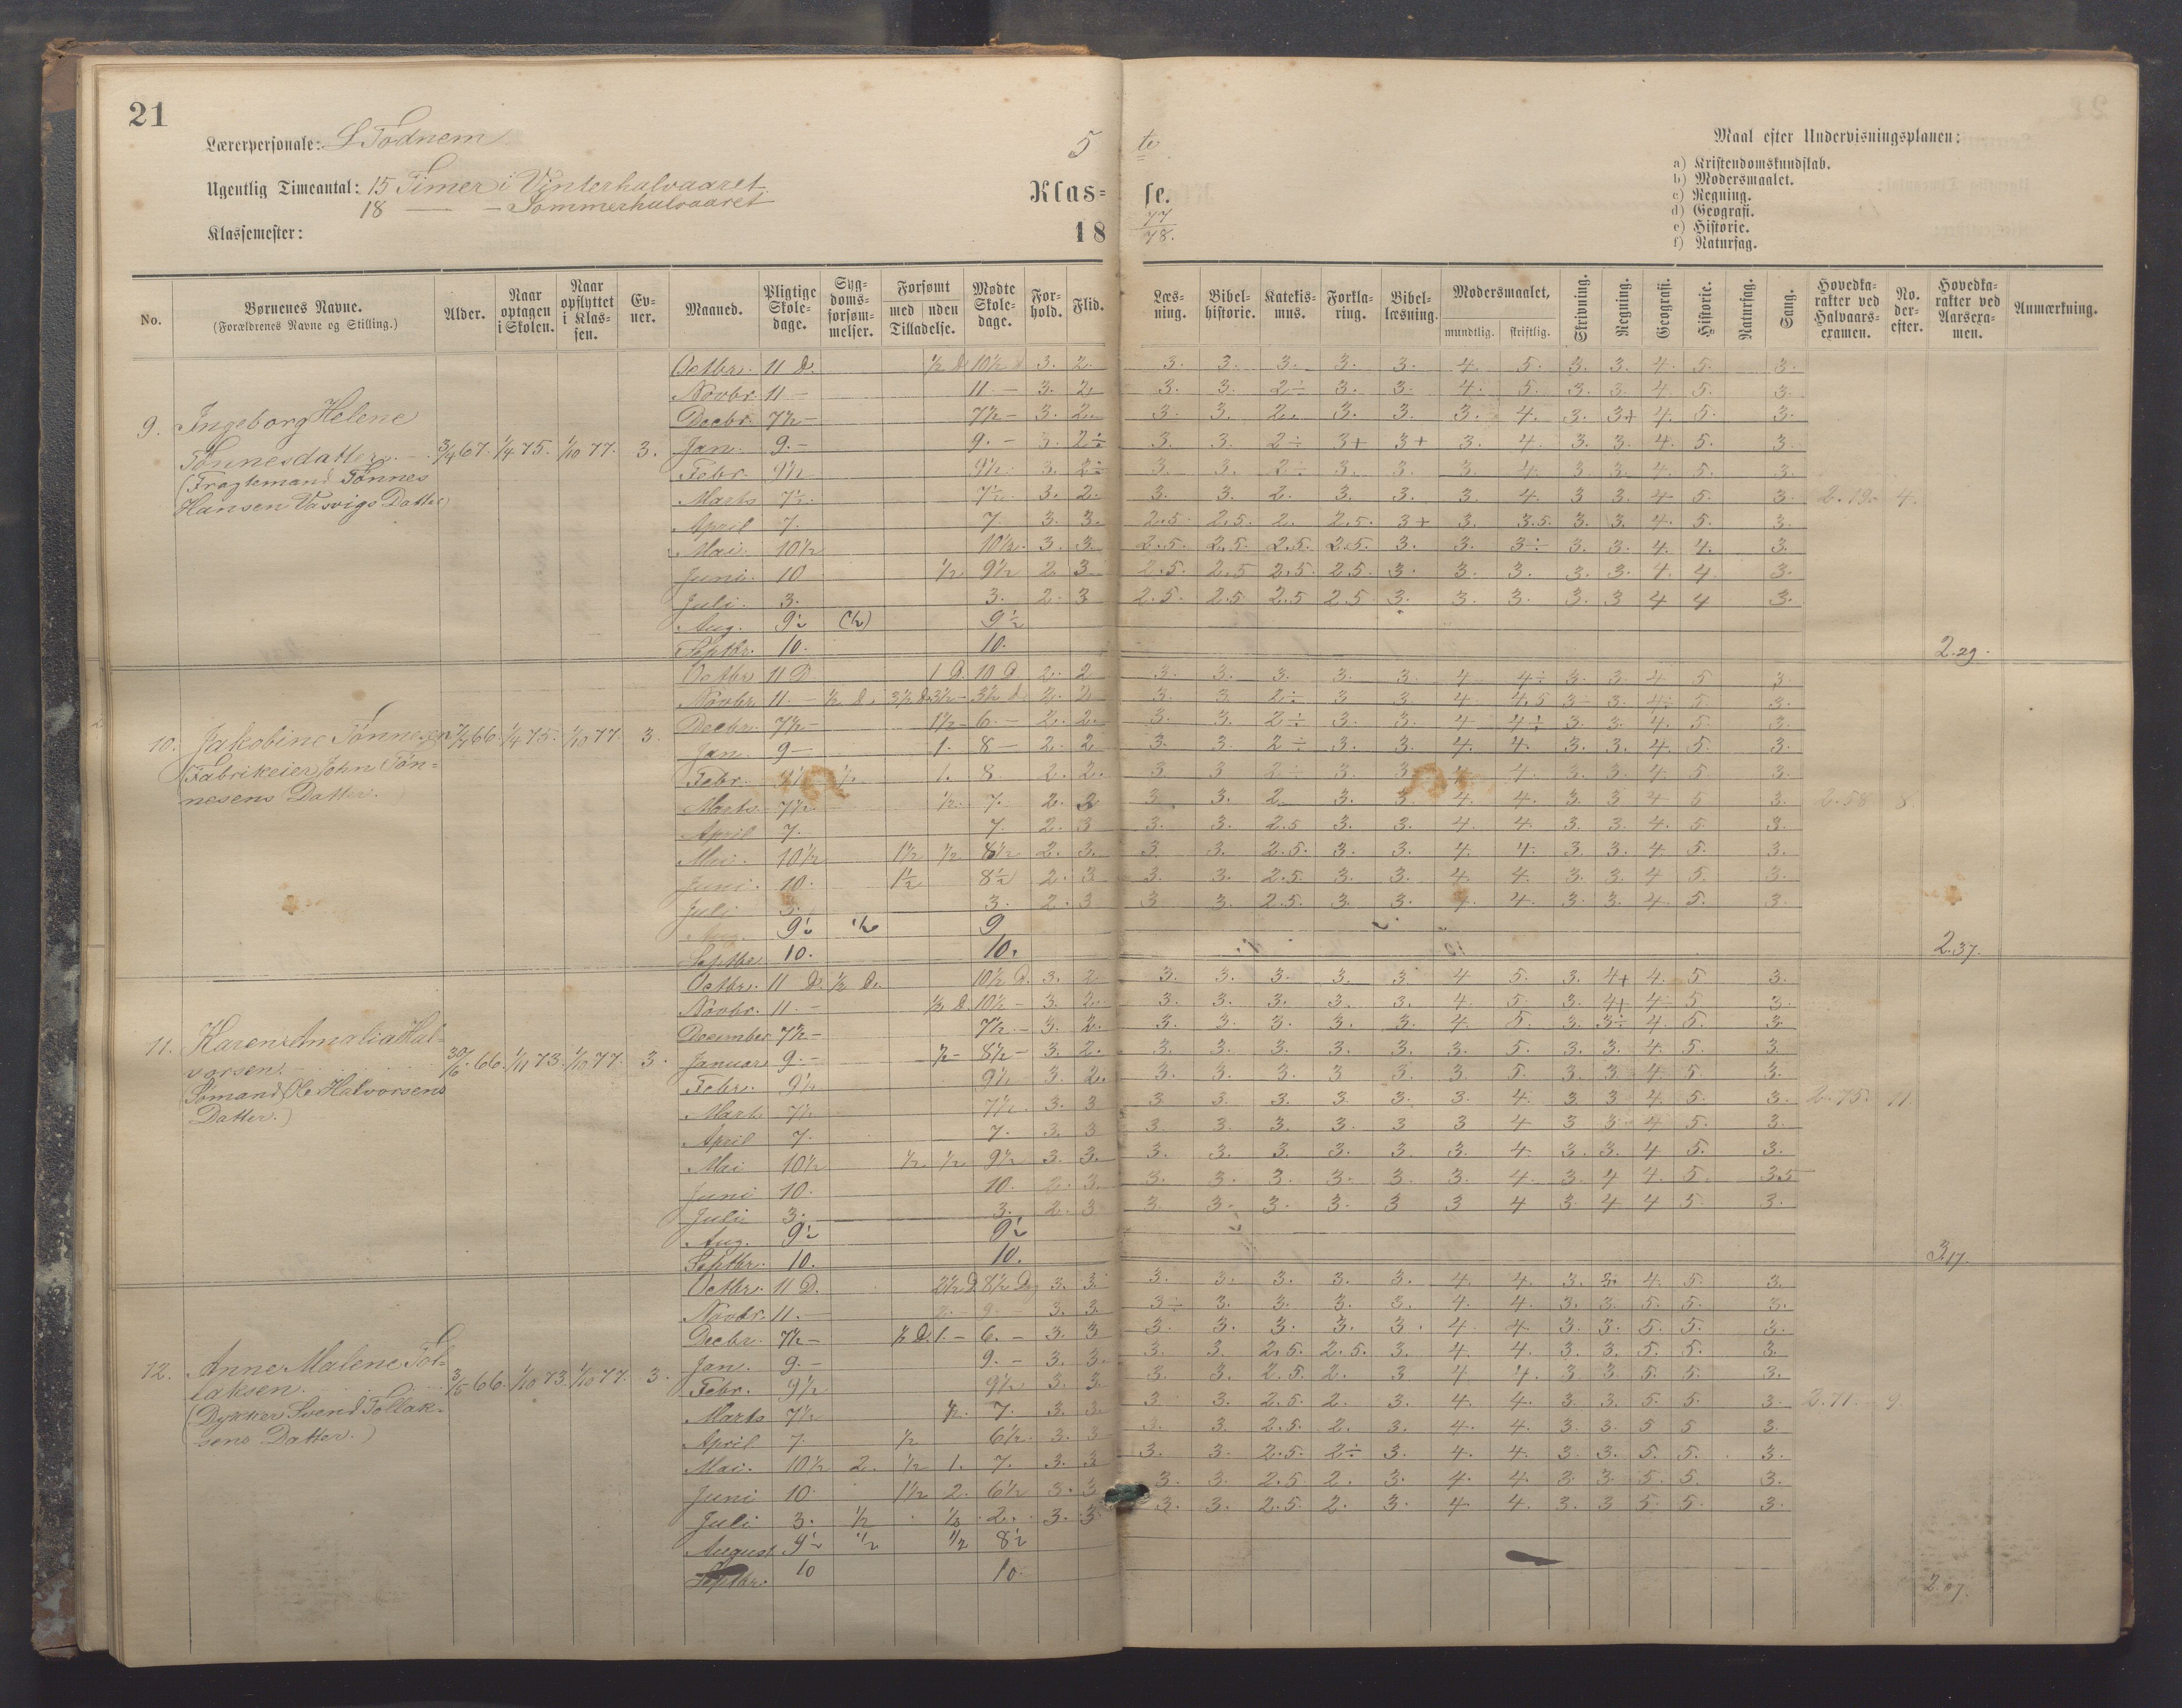 21
Lærerpersonale: L Todnem
5 te
Maal efter Undervisningsplanen:
a) Kristendomskundskab.
b) Modersmaalet.
c) Regning.
d) Geografi.
e) Historie.
f) Naturfag.
Ugentlig Timeantal: 15 Timer i Vinterhalvaaret
18 — – Sommerhalvaaret
Klas= se.
Klassemester:
18 77/78.
No. Børnenes Navne. (Forældrenes Navne og Stilling.) Alder. Naar optagen i Skolen. Naar opflyttet i Klassen. Evner. Maaned. Pligtige Skoledage. Sygdomsforsømmelser. Forsømt med uden Tilladelse. Mødte Skoledage. Forhold. Flid. Læsning. Bibelhistorie. Katekismus. Forklaring. Bibellæsning. Modersmaalet, mundtlig. skriftlig. Skrivning. Regning. Geografi. Historie. Naturfag. Sang. Hovedkarakter ved Halvaarsexamen. No. derefter. Hovedkarakter ved Aarsexamen. Anmærkning.
9. Ingeborg Helene
Tønnesdatter 3/4 67. 1/4 75. 1/10 77. 3.
(Fragtemand Tønnes
Hansen Vasvigs Datter)
Octbr. 11 D. ½ D. 10½ D 3. 2. 3. 3. 3. 3. 3. 4. 5. 3. 3. 4. 5. 3.
Novbr. 11 – 11 – 3. 2. 3. 3. 2÷ 3. 3. 4. 5. 3. 3. 4. 5. 3.
Decbr. 7½ – 7½ – 3. 2. 3. 3. 2. 3. 3. 3. 4. 3. 3+ 4. 5. 3.
Jan. 9. – 9. – 3. 2÷ 3. 3. 2÷ 3+ 3+ 3. 4. 3. 3. 4. 5. 3.
Febr. 9½ 9½ 3. 2÷ 3. 3. 2÷ 3. 3. 3. 4. 3. 3. 4. 5. 3.
Marts 7½. 7½. 3. 2. 3. 3. 2. 3. 3. 3. 4. 3 3. 4 5. 3. 2.19. 4.
April 7. 7. 3. 3. 2.5. 2.5. 2. 2.5. 3+ 3. 3.5. 3. 3. 4. 5. 3.
Mai. 10½ 10½. 3. 3. 2.5. 2.5. 2.5. 2.5. 3. 3. 3÷ 3. 3. 4. 4. 3.
Juni. 10 ½. 9½ 2 3. 2.5. 2.5 2.5. 2.5 3. 3. 3. 3. 3. 4 4 3.
Juli. 3. 3. 2. 3 2.5. 2.5 2.5 2.5 3. 3. 3. 3. 3 4 4 3.
Aug. 9½ (½) 9½
Septbr. 10. 10. 2.29.
10. Jakobine Tønnesen 1/4 75. 1/10 77. 3.
(Fabrikeier John Tøn=
nesens Datter.)
Octbr. 11 D. 1 D. 10 D. 2. 2 3. 3. 3. 3. 3. 4 4÷ 3. 3. 4 5 3.
Novbr. 11. – ½ D. 3½ D. 3½ – 3½ D. 2. 2. 3. 3 2÷ 3 3 4 4.5 3÷ 3. 4. 5. 3.
Decbr. 7½ – 1½ – 6. – 2. 2. 3. 3. 2÷ 3. 3. 4 4÷ 3. 3. 4. 5. 3.
Jan. 9 – 1. 8 – 2. 2 3. 3. 2÷ 3. 3. 4. 4. 3. 3. 4. 5. 3.
Febr. 9½ ½ 1. 8. 2. 2. 3. 3 2÷ 3. 3. 4 4. 3. 3. 4 5. 3.
Marts. 7½ ½. 7. 2. 2 3. 3. 2 3. 3. 4. 4. 3. 3 4 5 3. 2.58 8
April 7. 7. 2. 3 3. 3. 2.5 3. 3. 4 4. 3. 3. 4. 5. 3.
Mai. 10½ 1½ ½ 8½ 2. 3. 3. 3. 2.5. 3. 3. 4. 4. 3 3. 4. 5. 3.
Juni. 10. 1½ 8½ 2. 3 3. 3. 2.5 3. 3. 4. 4. 3. 3. 4 5. 3.
Juli 3. 3. 2. 3 3 3. 2.5. 3. 3. 4. 4. 3. 3. 4. 5. 3.
9½ ½ 9
Septbr 10. 10. 2.37.
11. Karen Amalia Hal-
vorsen. 30/6 66. 1/11 73. 1/10 77. 3.
(Sømand Ole Halvorsens
Datter.)
Octbr. 11 D. ½ D. 10½ D. 3. 2 3. 3. 3. 3. 3. 4 5. 3. 4+ 4. 5 3.
Novbr. 11. – ½ D. 10½ – 3. 2. 3. 3. 3. 3. 3. 4. 5 3. 4+ 4. 5 3.
December 7½ – 7½ – 3. 2. 3. 3. 3. 3. 3. 4. 5. 3. 3÷ 4. 5. 3.
Januar 9. – ½ – 8½ – 3. 2. 3. 3. 3. 3. 3. 3. 5. 3. 3. 4. 5. 3.
Febr. 9½ 9½ 3. 2. 3. 3. 3. 3 3. 3. 5. 3. 3 4 5. 3.
Mart. 7½ 7½. 3. 3 3 3. 3. 3. 3. 3. 4 3. 3 4 5. 3. 2.75. 11.
April 7. 7. 3. 3 3. 3. 3. 3. 3 3 4 3 3. 4 5. 3.
Mai 10½ ½ ½ 9½ 3. 3. 3. 3. 3. 3. 3. 3. 4. 3. 3. 4 5. 3.
Juni 10. 10. 2. 3. 3. 3. 3. 3. 3. 3. 4. 3. 4 4. 5 3.5
Juli 3. 3. 2. 3 3. 3. 3. 3. 3 3 4 3. 4 4 5 3.
Aug. 9½ 9½
Septbr. 10. 10. 3.17.
12. Anne Malene Tol-
laksen. 3/5 66. 1/10 73. 1/10 77. 3.
(Dykker Svend Tollak-
sens Datter.)
Octbr. 11 D. 2½ D 8½ D. 3. 3. 3. 3. 3. 3. 3. 4. 4. 3. 3. 4. 5. 3.
Novbr. 11. – 2. – 9. – 3. 3. 3÷ 3. 3. 3. 3. 4. 4. 3. 3. 5. 5. 3.
Decbr. 7½ – ½ D. 1. – 6. – 3. 3 3. 3. 3. 3. 3. 4 4. 3. 3. 5. 5. 3.
Jan. 9. – 9. – 3. 3. 3. 3. 2.5. 2.5. 3. 4 4. 3. 3. 5. 5. 3.
Febr. 9½ 9½ 3. 3. 3. 3. 2.5. 2. 3 4 4. 3 3. 5. 5. 3.
Marts 7½ ½. 7. 3. 3. 3 3. 2.5. 2. 3. 4. 4. 3. 3 5. 5. 3. 2.71. 9.
April 7. ½ 6½. 3. 3 3. 3. 2.5. 2. 3. 4. 4. 3. 3. 5 5 3.
Mai. 10½ 2. ½ 1. 7. 3. 3 3. 3. 2.5. 2÷ 3. 4 4. 3. 3. 5. 5. 3.
Juni 10. 1½ 2. 6½ 3. 3 3. 3. 2.5 2. 3. 4. 4. 3 3. 5. 5. 3.
Juli 3. ½ ½ 2. 3. 3 3. 3. 2.5. 2. 3. 4. 4. 3. 3 5. 5. 3.
August 9½ ½ ½ 8½
Septbr. 10 10.